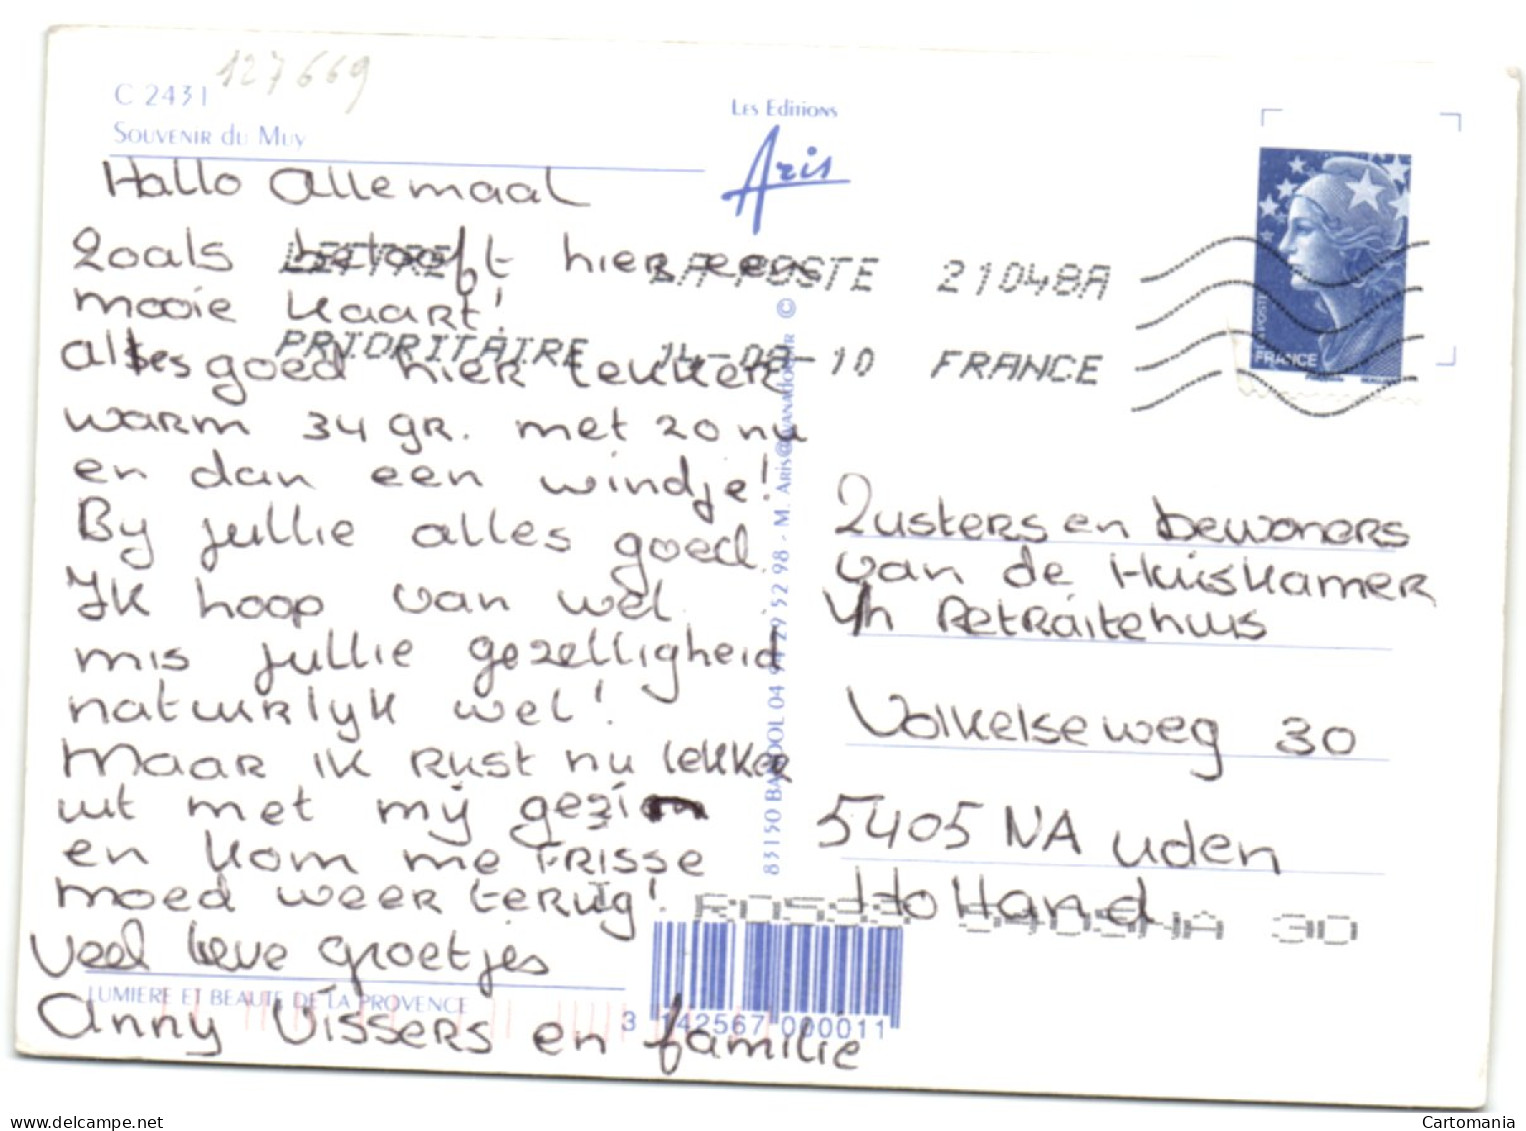 127669
C 2431
Souvenir du Muy
Les Editions
Aris
Hallo Allemaal
Zoals beloofd hier een
mooie kaart!
alles goed hier lekker
warm 34 gr. met 20 nu
en dan een windje!
By jullie alles goed.
Ik hoop van wel.
mis jullie gezelligheid
natuurlyk wel!
Maar ik rust nu lekker
uit met mij gezin
en kom me frisse
moed weer terug!
Veel lieve groetjes
Anny Vissers en familie
LUMIERE ET BEAUTE DE LA PROVENCE
LETTRE LA POSTE 21048A
PRIORITAIRE 14-08-10 FRANCE
LA POSTE
FRANCE
83150 BANDOL 04 94 29 52 98 - M. Aris@wanadoo.fr ©
Zusters en bewoners
van de Huiskamer
in Retraitehuis
Volkelseweg 30
5405 NA uden
Holland
5405NA 30
3 142567 000011
Cartomania
www.delcampe.net